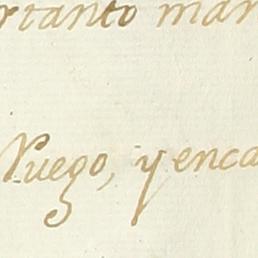 rtanto man
Ruego, y enca